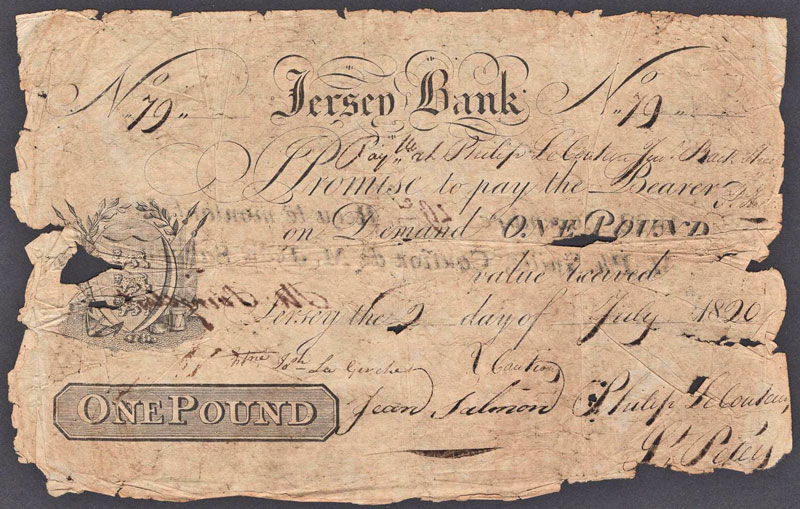 No 79 Jersey Bank No 79
Payble at Philip Le Couteur Junr Back
I Promise to pay the Bearer
on Demand ONE POUND
value received
Jersey the 2 day of July 1820
Caution
ONE POUND Jean Salmon Philip Le Couteur
St Peter